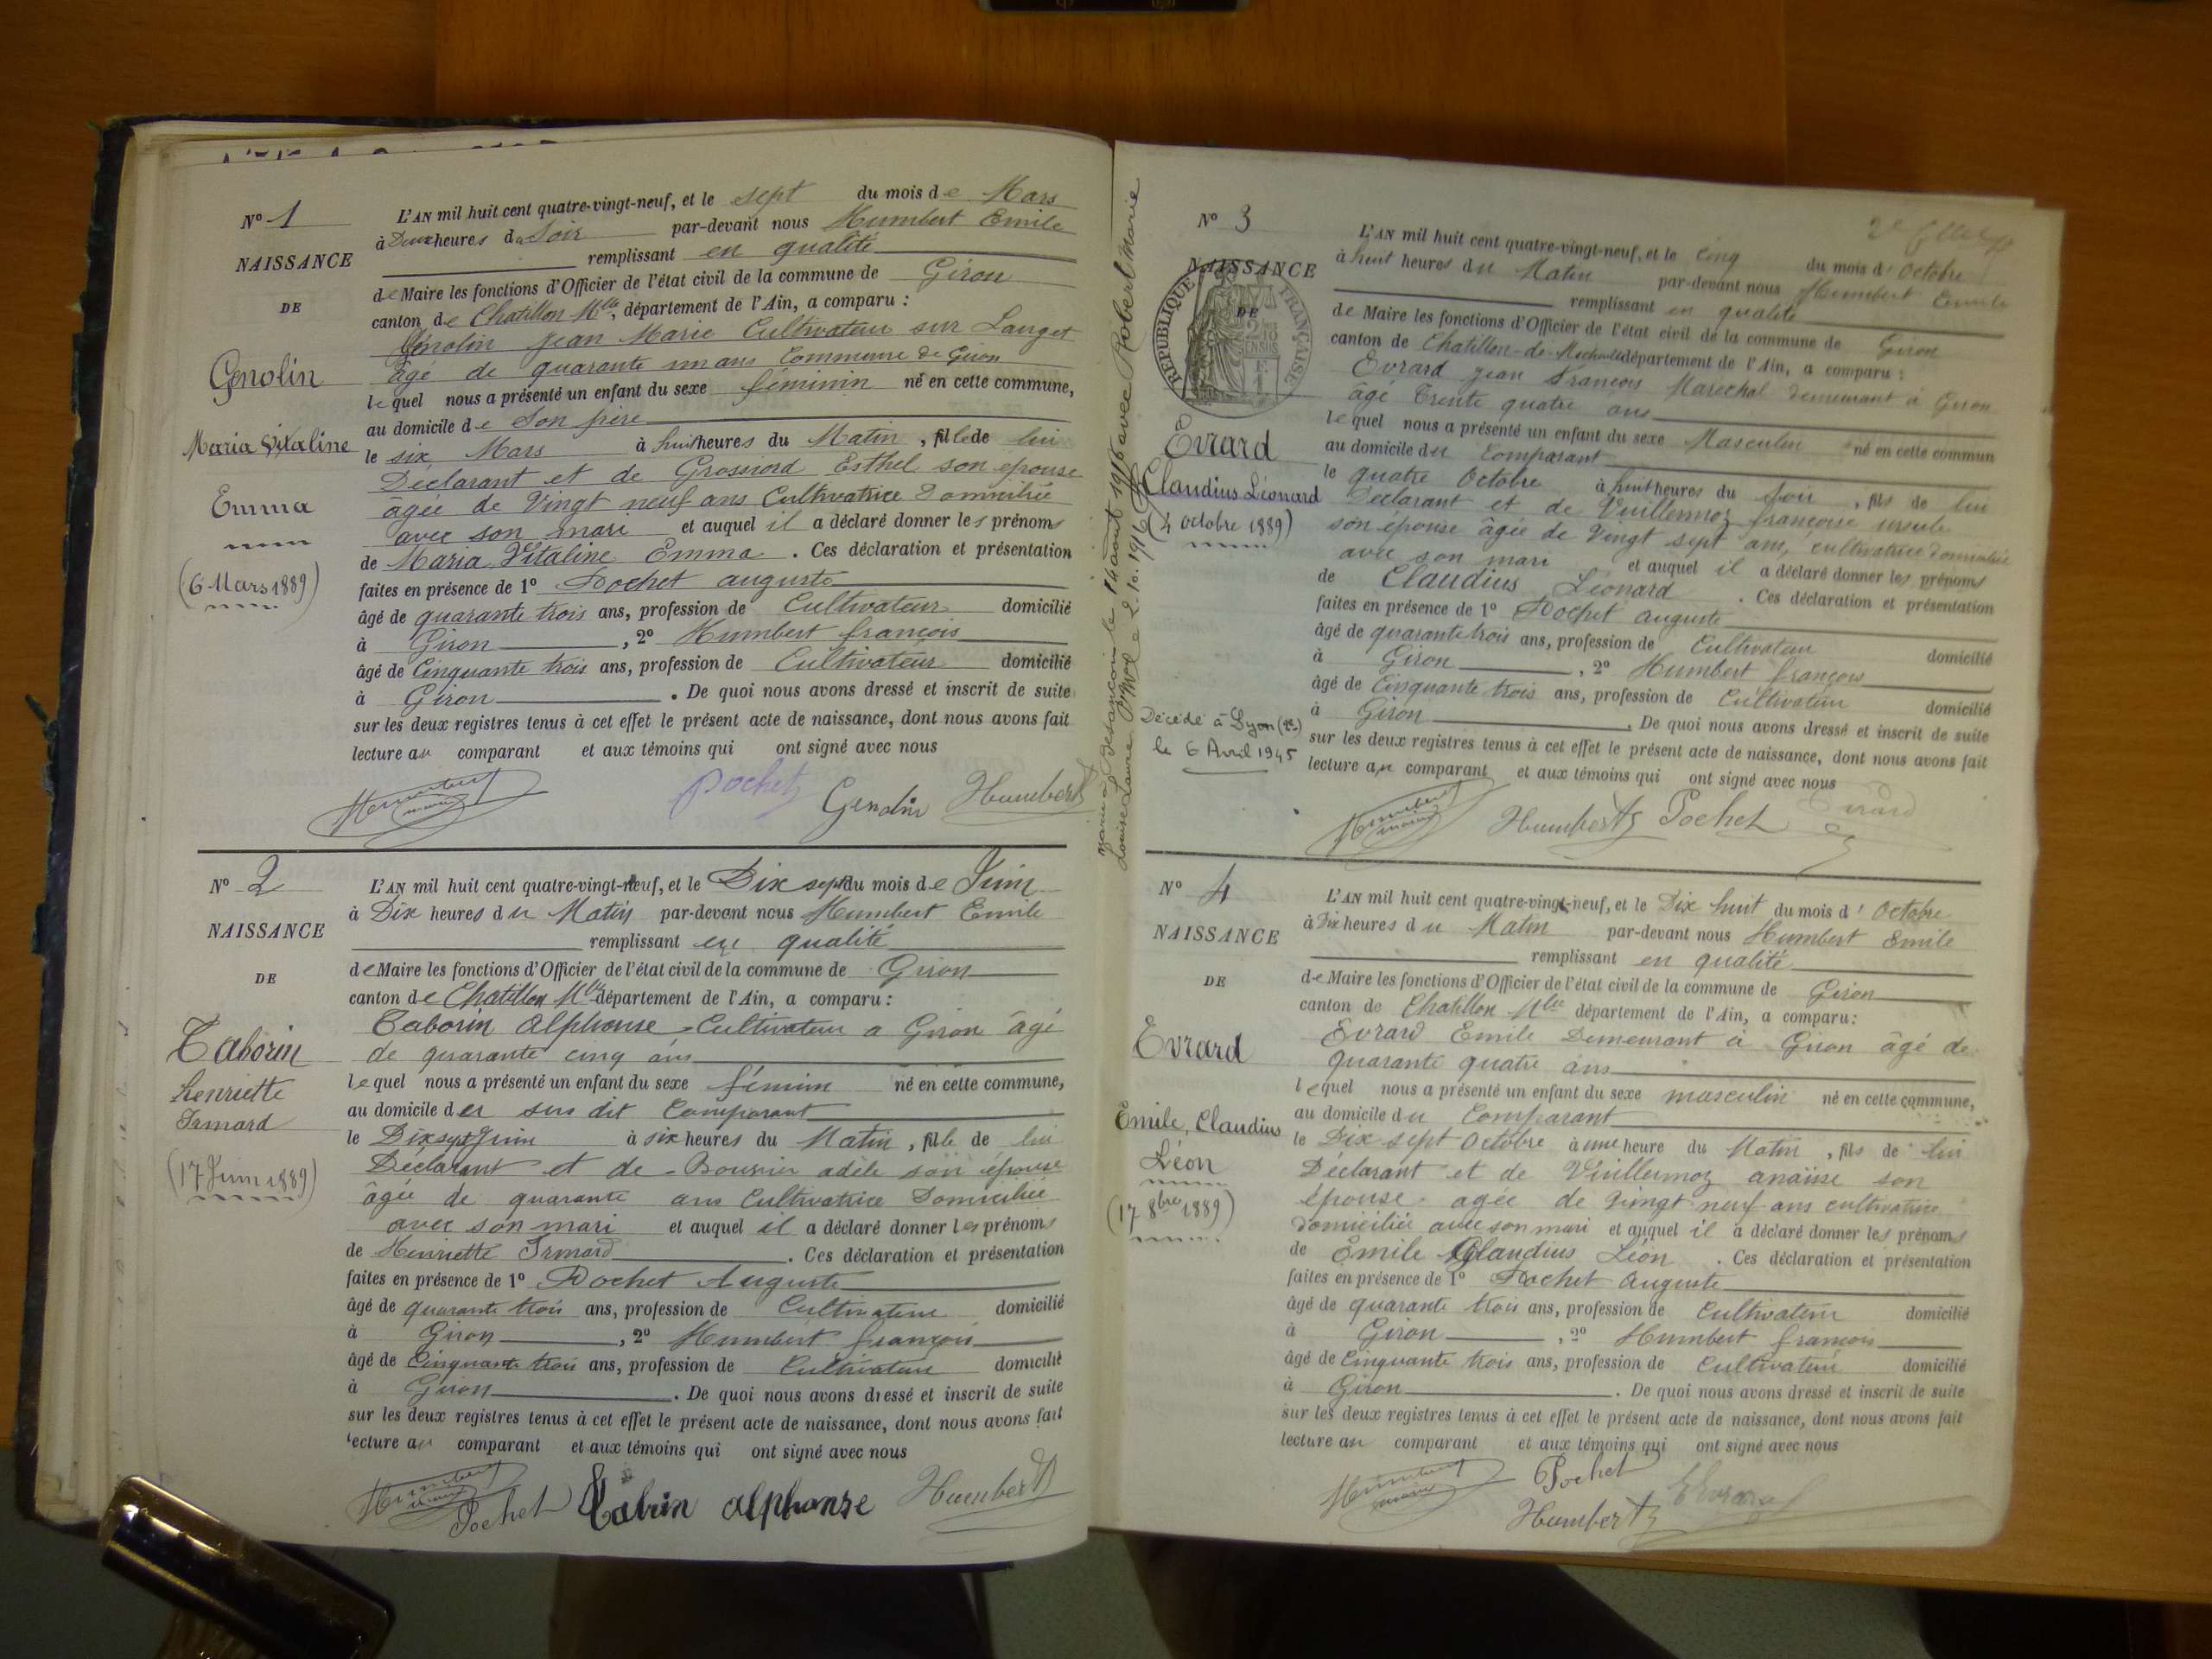 N° 1
NAISSANCE
DE
Genolin
Maria Vitaline
Emma
(6 Mars 1889)
L'AN mil huit cent quatre-vingt-neuf, et le sept du mois de Mars
à Deux heures du Soir par-devant nous Humbert Emile
remplissant en qualité
de Maire les fonctions d'Officier de l'état civil de la commune de Giron
canton de Chatillon Mlle, département de l'Ain, a comparu :
Genolin Jean Marie Cultivateur sur Langet
âgé de quarante un ans Commune de Giron
lequel nous a présenté un enfant du sexe féminin né en cette commune,
au domicile de Son père
le six Mars à huit heures du Matin, fille de lui
Déclarant et de Grossiord Esthel son épouse
âgée de Vingt neuf ans Cultivatrice Domiciliée
avec son mari et auquel il a déclaré donner les prénoms
de Maria Vitaline Emma. Ces déclaration et présentation
faites en présence de 1° Pochet auguste
âgé de quarante trois ans, profession de Cultivateur domicilié
à Giron, 2° Humbert françois
âgé de Cinquante trois ans, profession de Cultivateur domicilié
à Giron. De quoi nous avons dressé et inscrit de suite
sur les deux registres tenus à cet effet le présent acte de naissance, dont nous avons fait
lecture au comparant et aux témoins qui ont signé avec nous
Humbert maire Pochet Genolin Humbert
N° 2
NAISSANCE
DE
Taborin
henriette
Irmard
(17 Juin 1889)
L'AN mil huit cent quatre-vingt-neuf, et le Dix sept du mois de Juin
à Dix heures du Matin par-devant nous Humbert Emile
remplissant en qualité
de Maire les fonctions d'Officier de l'état civil de la commune de Giron
canton de Chatillon Mlle département de l'Ain, a comparu :
Taborin Alphonse Cultivateur a Giron âgé
de quarante cinq ans
lequel nous a présenté un enfant du sexe fémini né en cette commune,
au domicile du sus dit Comparant
le Dix sept Juin à six heures du Matin, fille de lui
Déclarant et de Bournier adèle son épouse
âgée de quarante ans Cultivatrice Domiciliée
avec son mari et auquel il a déclaré donner les prénoms
de Henriette Irmard. Ces déclaration et présentation
faites en présence de 1° Pochet Auguste
âgé de quarante trois ans, profession de Cultivateur domicilié
à Giron, 2° Humbert françois
âgé de Cinquante trois ans, profession de Cultivateur domicilié
à Giron. De quoi nous avons dressé et inscrit de suite
sur les deux registres tenus à cet effet le présent acte de naissance, dont nous avons fait
lecture au comparant et aux témoins qui ont signé avec nous
Humbert maire Pochet Tabrin alphonse Humbert
2e
N° 3
NAISSANCE
DE
RÉPUBLIQUE FRANÇAISE
Evrard
Claudius Léonard
(4 octobre 1889)
Marié à Besançon le 14 aout 1916 avec Robert Marie
Louise Laure 2.10.1916
Décédé à Lyon
le 6 Avril 1945
L'AN mil huit cent quatre-vingt-neuf, et le cinq du mois d' Octobre
à huit heures du Matin par-devant nous Humbert Emile
remplissant en qualité
de Maire les fonctions d'Officier de l'état civil de la commune de Giron
canton de Chatillon-de-Michaille département de l'Ain, a comparu :
Evrard jean François Marechal demeurant à Giron
âgé Trente quatre ans
lequel nous a présenté un enfant du sexe Masculin né en cette commun
au domicile du Comparant
le quatre Octobre à huit heures du soir, fils de lui
Déclarant et de Vuillermoz françoise ursule
son épouse âgée de Vingt sept ans, cultivatrice domiciliée
avec son mari et auquel il a déclaré donner les prénoms
de Claudius Léonard. Ces déclaration et présentation
faites en présence de 1° Pochet auguste
âgé de quarante trois ans, profession de Cultivateur domicilié
à Giron, 2° Humbert françois
âgé de Cinquante trois ans, profession de Cultivateur domicilié
à Giron. De quoi nous avons dressé et inscrit de suite
sur les deux registres tenus à cet effet le présent acte de naissance, dont nous avons fait
lecture au comparant et aux témoins qui ont signé avec nous
Humbert maire Humbert Pochet Evrard
N° 4
NAISSANCE
DE
Evrard
Emile, Claudius
Léon
(17 8bre 1889)
L'AN mil huit cent quatre-vingt-neuf, et le Dix huit du mois d' Octobre
à Dix heures du Matin par-devant nous Humbert Emile
remplissant en qualité
de Maire les fonctions d'Officier de l'état civil de la commune de Giron
canton de Chatillon Mlle département de l'Ain, a comparu :
Evrard Emile Demeurant à Giron âgé de
quarante quatre ans
lequel nous a présenté un enfant du sexe masculin né en cette commune,
au domicile du Comparant
le Dix sept Octobre à une heure du Matin, fils de lui
Déclarant et de Vuillermoz anaïse son
épouse agée de Vingt neuf ans cultivatrice
domiciliée avec son mari et auquel il a déclaré donner les prénoms
de Emile Claudius Léon. Ces déclaration et présentation
faites en présence de 1° Pochet auguste
âgé de quarante trois ans, profession de Cultivateur domicilié
à Giron, 2° Humbert françois
âgé de Cinquante trois ans, profession de Cultivateur domicilié
à Giron. De quoi nous avons dressé et inscrit de suite
sur les deux registres tenus à cet effet le présent acte de naissance, dont nous avons fait
lecture au comparant et aux témoins qui ont signé avec nous
Humbert maire Pochet EEvrard
Humbert